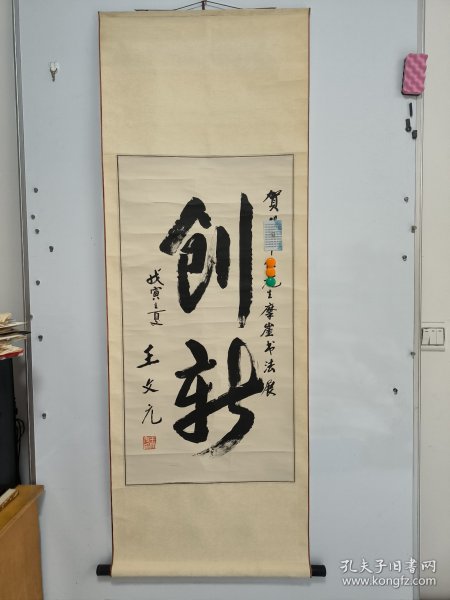 贺
生摩崖书法展
创新
戊寅之夏
王文元
孔夫子旧书网
www.kongfz.com